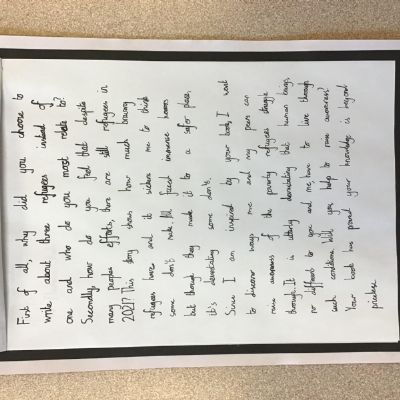 First of all, why did you choose to
write about three refugees instead of
one and who do you most relate to?
Secondly, how do you feel that despite
many peoples efforts, there are still refugees in
2021? This story shows how much bravery
refugees have and it sickens me to think
some don't make it. All faced immense horrors
but though they make it to a safer place,
it's devastating some don't.
Since I am inspired by your book, I want
to discover ways me and my peers can
raise awareness of the poverty refugees struggle
through. It is utterly devastating that human beings,
no different to you and me, have to live through
such conditions. Will you help to raise awareness?
Your book has proved your knowledge is beyond
priceless.